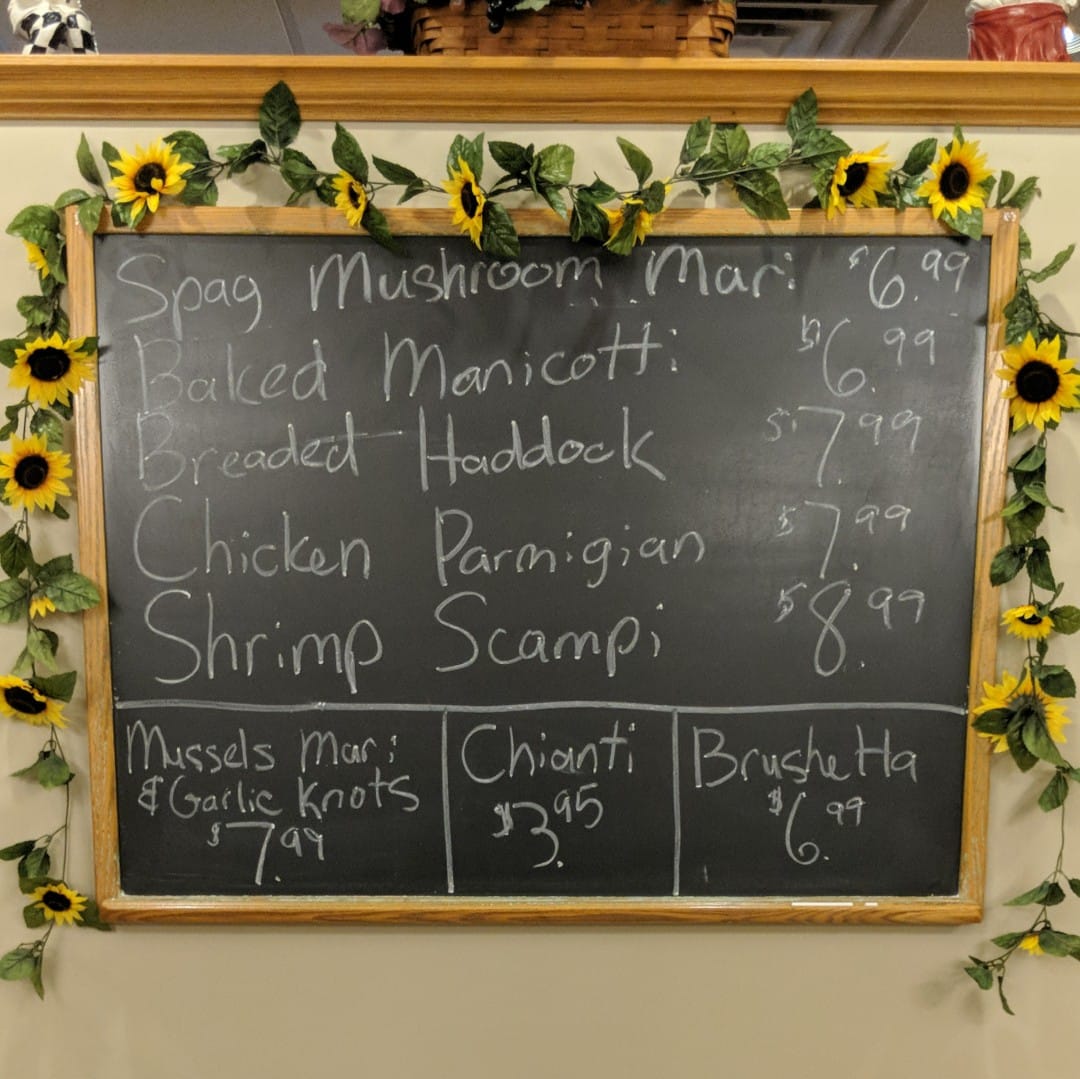 Spag Mushroom Mari $6.99
Baked Manicotti $6.99
Breaded Haddock $7.99
Chicken Parmigian $7.99
Shrimp Scampi $8.99
Mussels Mari
& Garlic Knots
$7.99
Chianti
$3.95
Brushetta
$6.99